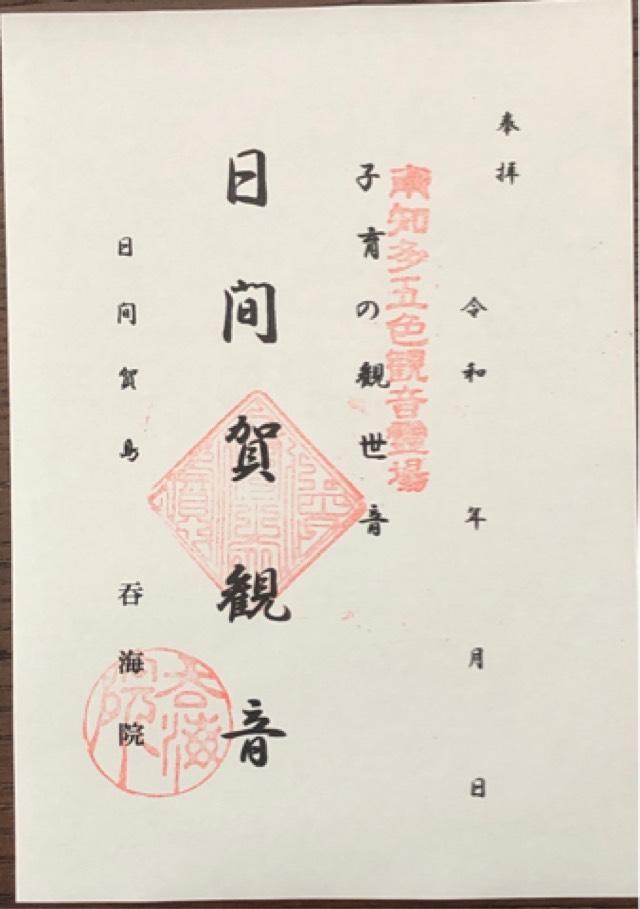 奉拝
令和 年 月 日
南知多五色観音霊場
子育の観世音
日間賀観音
日間賀島 呑海院
呑海院